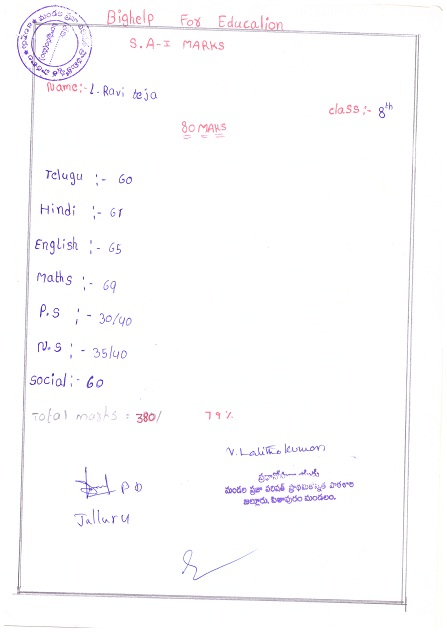 Bighelp For Education
S.A-I MARKS
Name:- L. Ravi teja
class:- 8th
80 MAKS
Telugu :- 60
Hindi :- 61
English :- 65
Maths :- 69
P.S :- 30/40
N.S :- 35/40
Social:- 60
Total marks = 380/ 79%
V. Lalitha Kumari
మండల ప్రజా పరిషత్ ప్రాథమికోన్నత పాఠశాల
జల్లూరు, పిఠాపురం మండలం.
P D
Jalluru